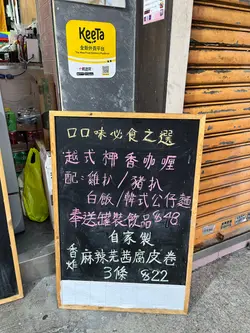 KeeTa
全新外賣平台
口口味必食之選
越式椰香咖喱
配:雞扒/豬扒
白飯/韓式公仔麵
奉送罐裝飲品 $48
自家製
香炸麻辣芫茜腐皮卷
3條 $22